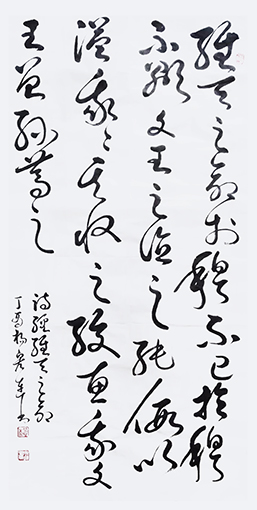 維天之命於穆不已於穆
不顯文王之德之純假以
溢我〻其收之駿惠我文
王曾孫篤之
詩經維天之命
丁 楊